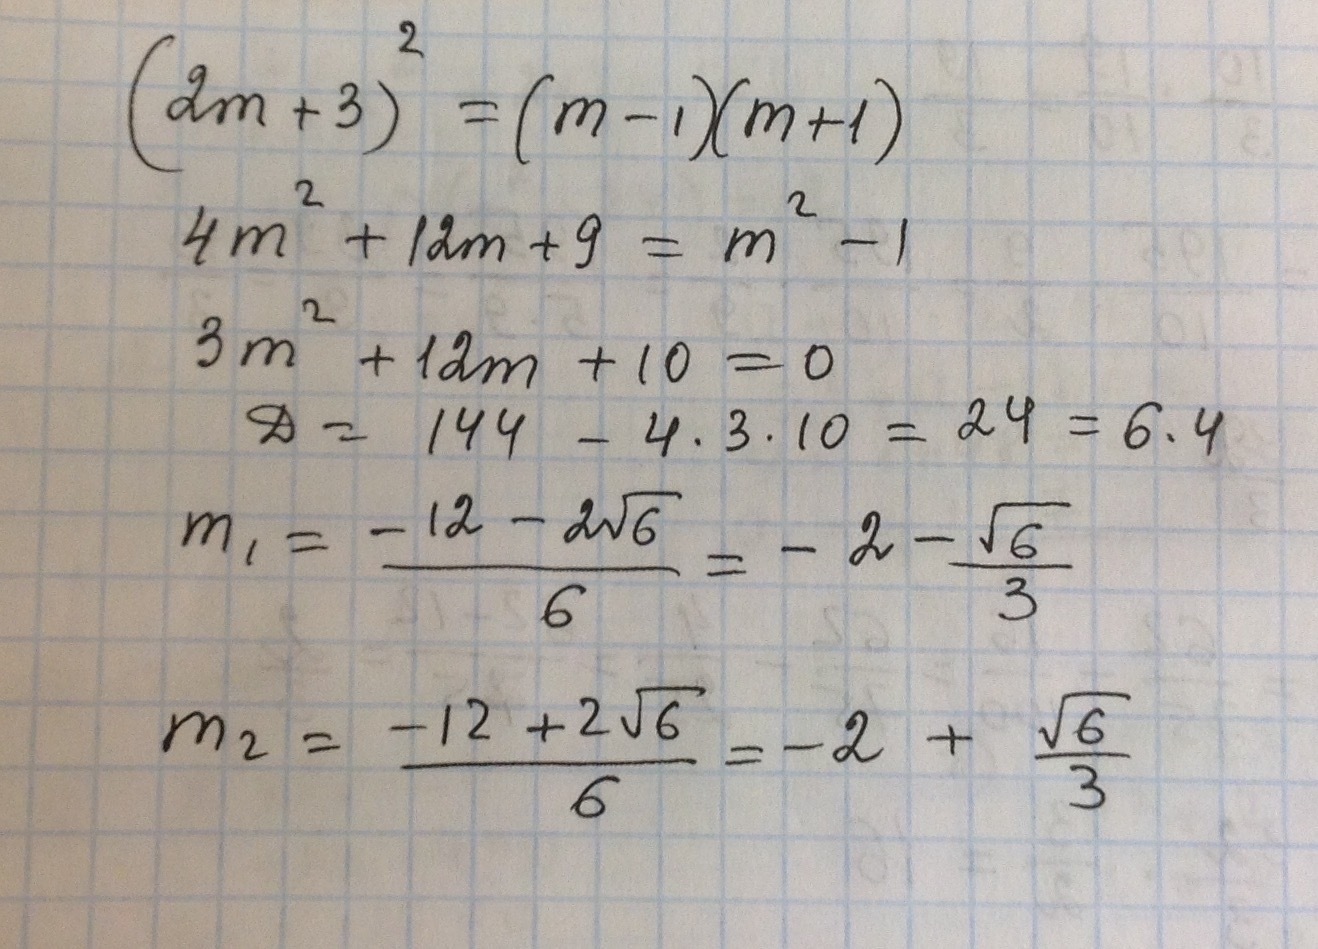 (2m + 3)² = (m - 1)(m + 1)
4m² + 12m + 9 = m² - 1
3m² + 12m + 10 = 0
D = 144 - 4 · 3 · 10 = 24 = 6 · 4
m₁ = (-12 - 2√6)/6 = -2 - √6/3
m₂ = (-12 + 2√6)/6 = -2 + √6/3